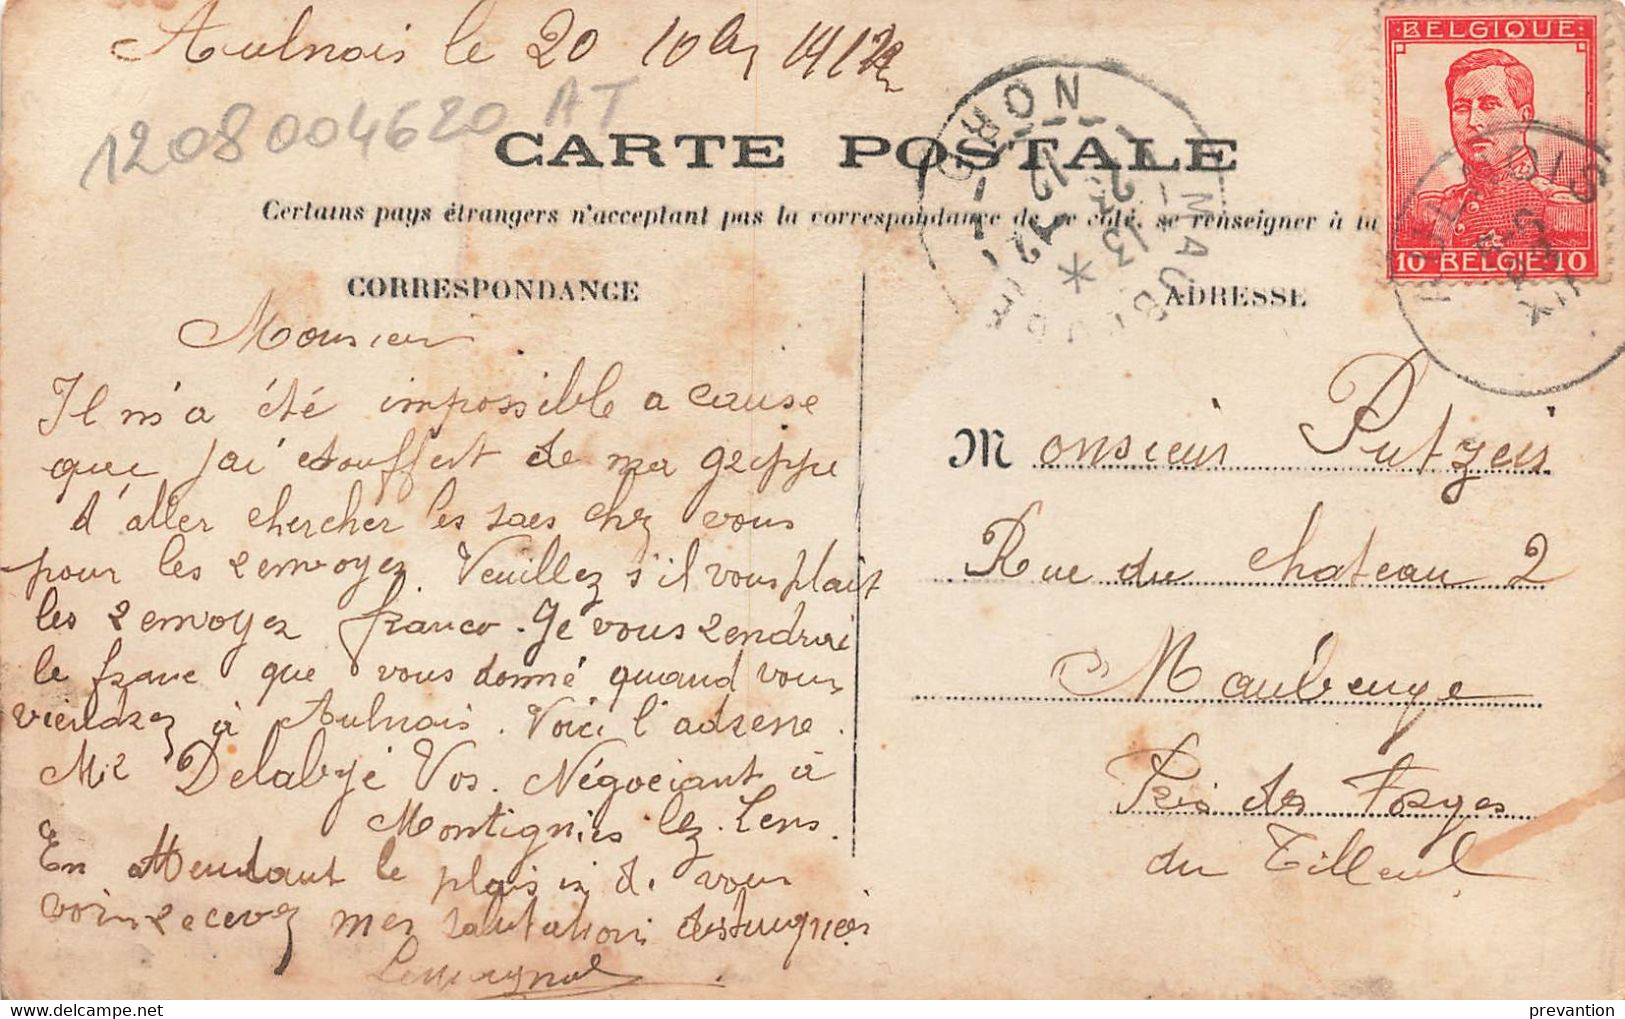 Aulnois le 20 10bre 1912
1208004620 AT
BELGIQUE
10 BELGIE 10
CARTE POSTALE
Certains pays étrangers n'acceptent pas la correspondance de ce côté, se renseigner à la
MAUBEUGE NORD
CORRESPONDANCE
ADRESSE
Monsieur
Il m'a été impossible a cause
que j'ai etouffert de ma grippe
d'aller chercher les sacs chez vous
pour les renvoyez. Veuillez s'il vous plait
les renvoyez franco. Je vous rendrai
le franc que vous donné quand vous
viendrez à Aulnois. Voici l'adresse.
Mr Delabyé Vos. Négociant à
Montignies lez-Lens.
En Attendant le plaisir de vous
voir recevez mes salutations distinguées
Monsieur Putzeis
Rue du Chateau 2
Maubeuge
Près des Forges
du Tilleul
prevantion